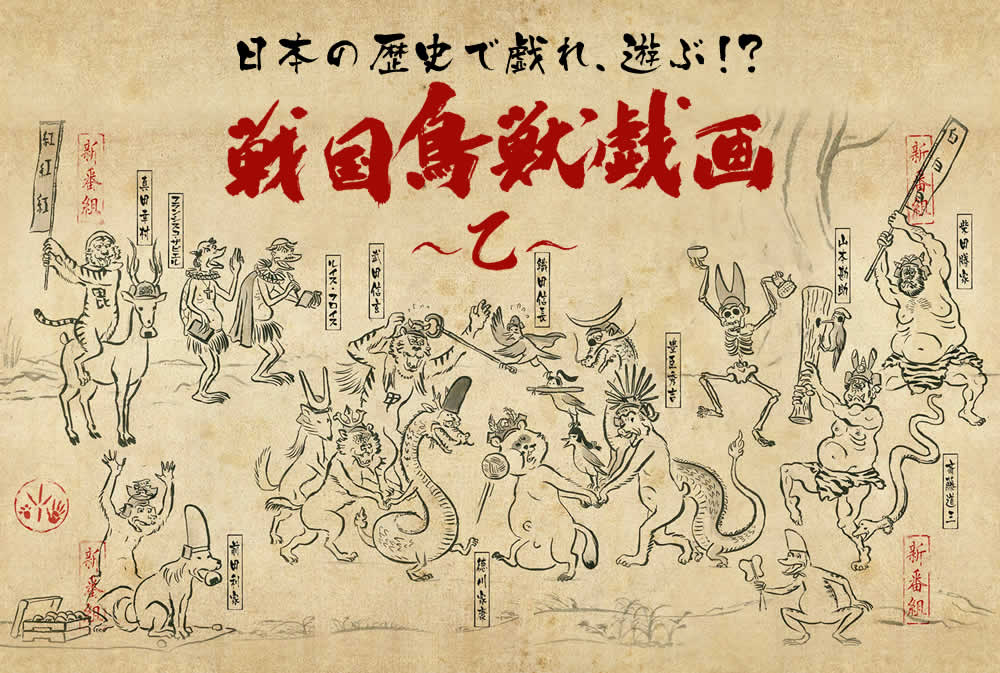 日本の歴史で戯れ、遊ぶ!?
戦国鳥獣戯画
〜乙〜
紅 紅 紅
新番組
真田幸村
フランシスコ・ザビエル
ルイス・フロイス
武田信玄
織田信長
豊臣秀吉
山本勘助
新番組
柴田勝家
毘
斎藤道三
新番組
前田利家
徳川家康
新番組